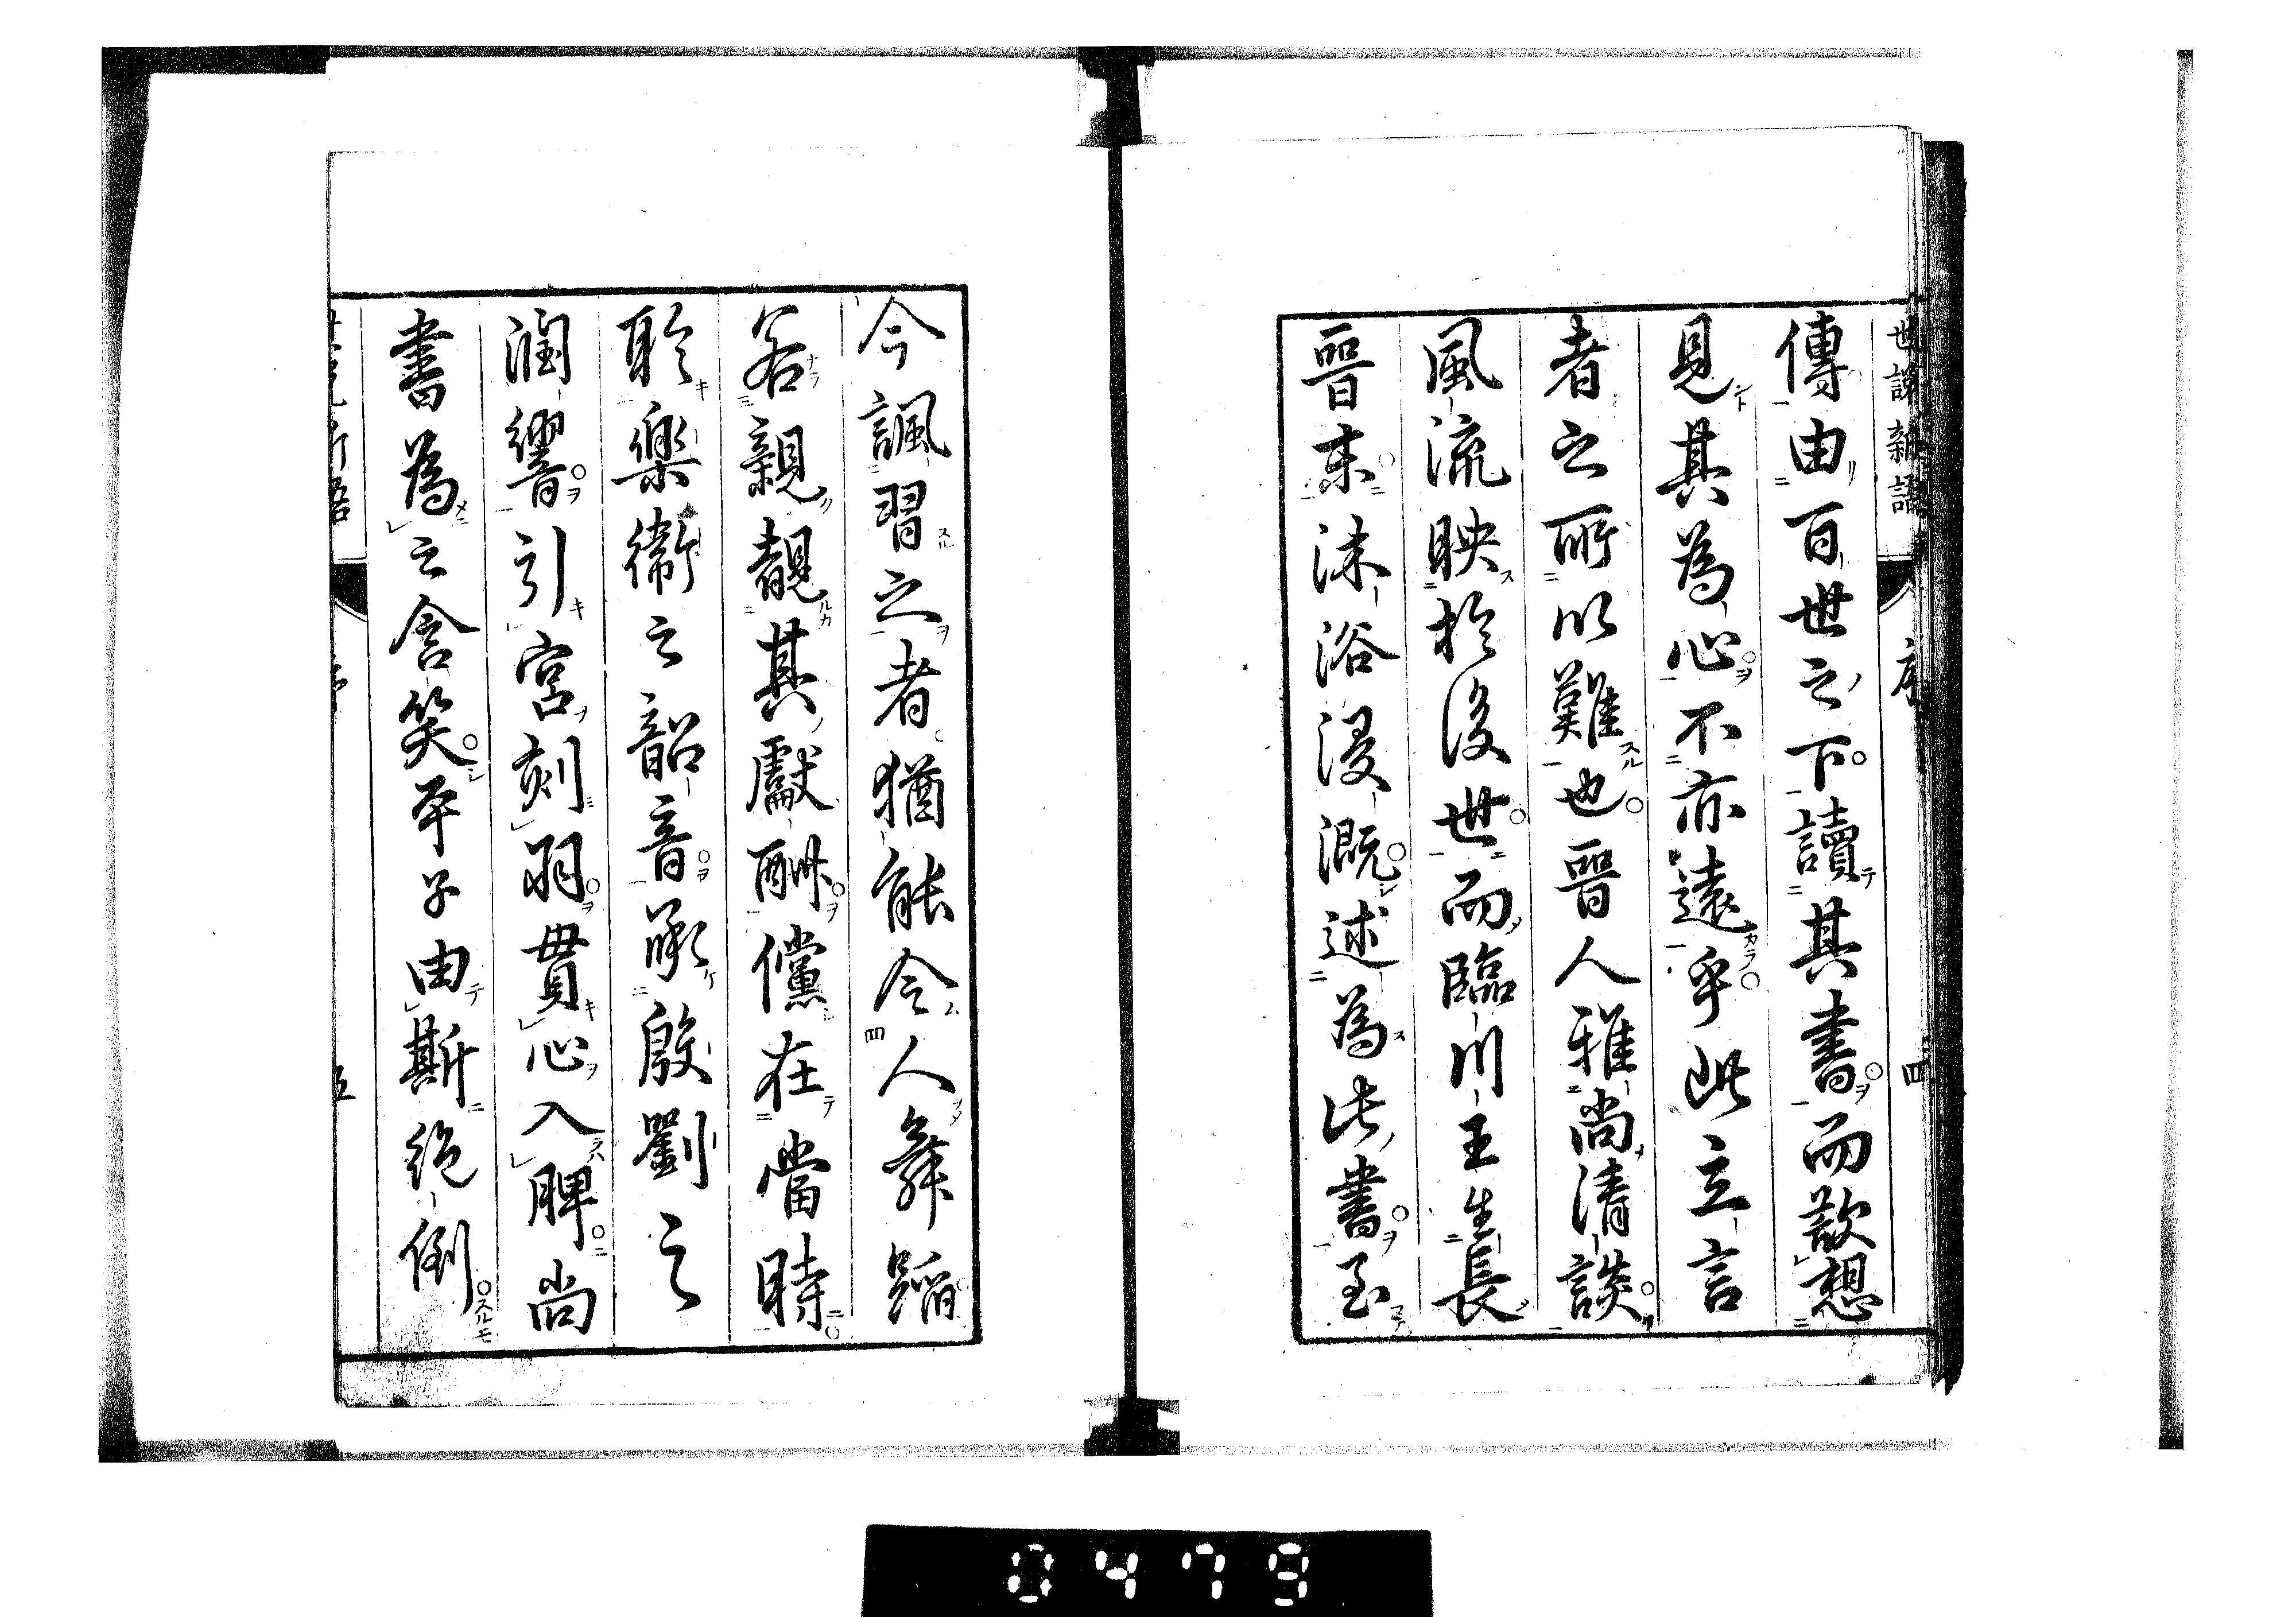 世說新語 序 四
傳由百世之下讀其書而欲想
見其為心不亦遠乎此立言
者之所以難也晉人雅尚清談
風流映於後世而臨川王生長
晉末沐浴浸溉述為此書至
今諷習之者猶能令人舞蹈
若親覩其獻酬儻在當時
聆樂衛之韶音承殷劉之
潤響引宮刻羽貫心入脾尚
書為之含笑平子由斯絕倒
0479